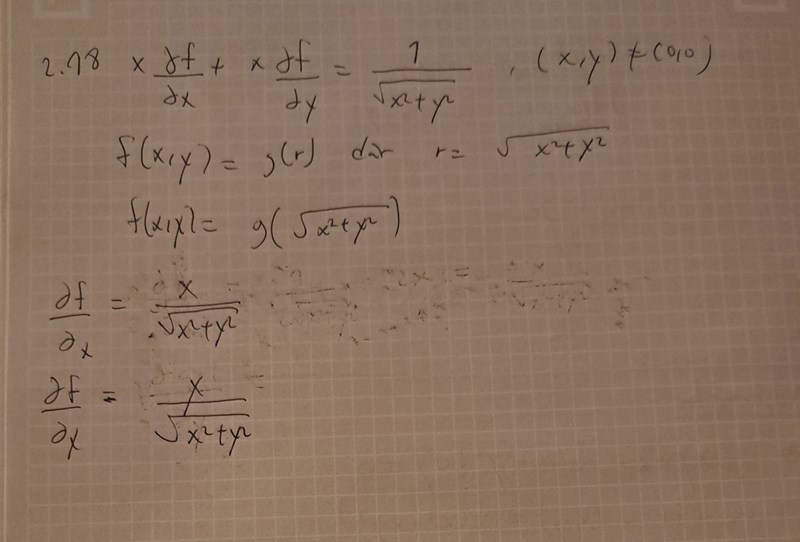 2.18 x ∂f/∂x + y ∂f/∂y = 1/√(x²+y²) , (x,y) ≠ (0,0)
f(x,y) = g(r) där r = √(x²+y²)
f(x,y) = g(√(x²+y²))
∂f/∂x = x/√(x²+y²)
∂f/∂y = y/√(x²+y²) =